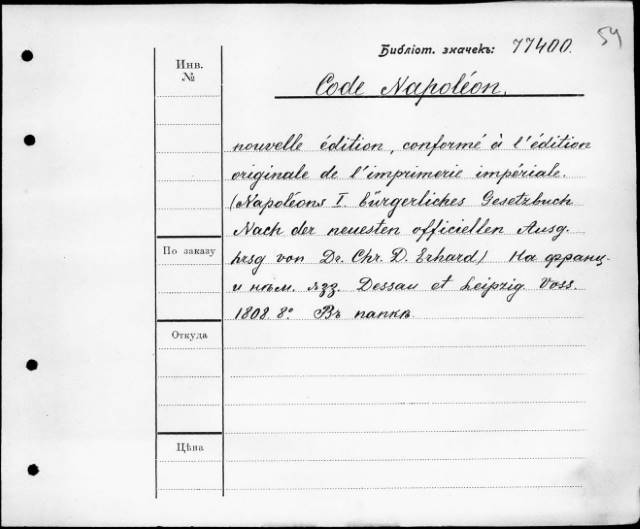 Библіот. значекъ: 77400.
54
Инв. №
Code Napoléon.
nouvelle édition, conformé à l'édition
originale de l'imprimerie impériale.
(Napoléons I. bürgerliches Gesetzbuch
Nach der neuesten officiellen Ausg.
По заказу
hrsg von Dr. Chr. D. Erhard) На франц.
и нѣм. язз. Dessau et Leipzig. Voss.
1808. 8° Въ папкѣ.
Откуда
Цѣна